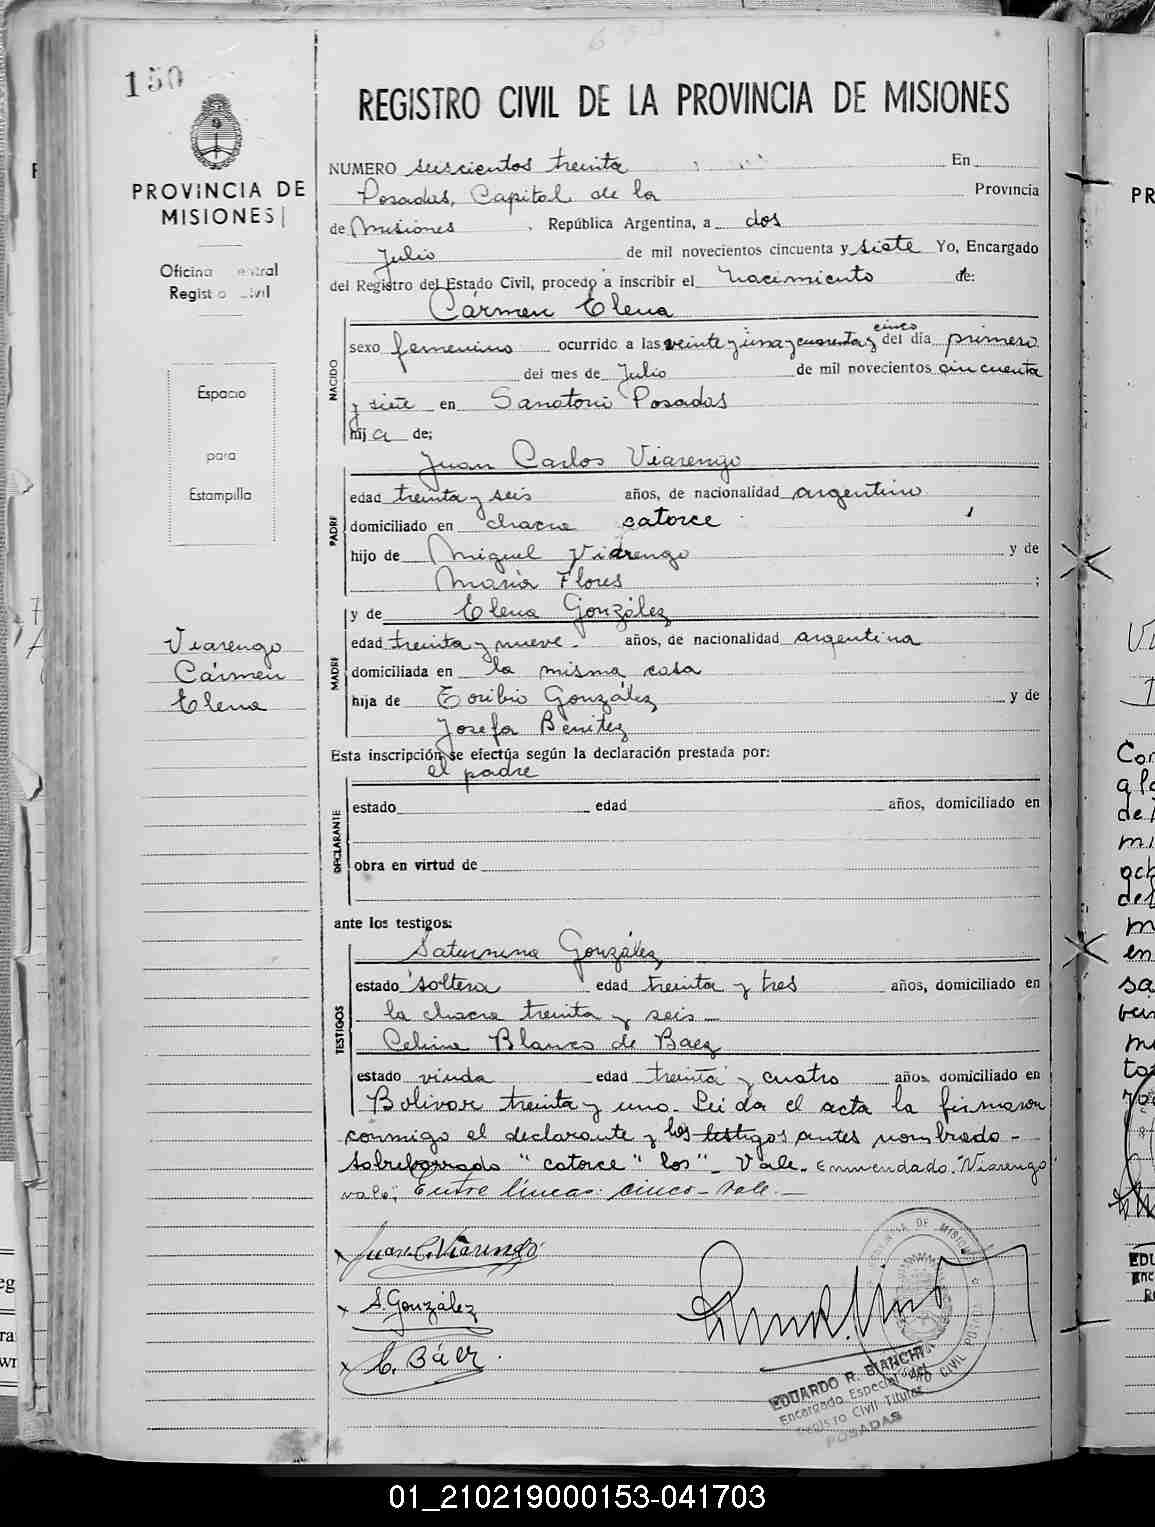 150
PROVINCIA DE
MISIONES
Oficina Central
Registro Civil
Espacio
para
Estampilla
Viarengo
Cármen
Elena
REGISTRO CIVIL DE LA PROVINCIA DE MISIONES
NUMERO seiscientos treinta En
Posadas, Capital de la Provincia
de Misiones, República Argentina, a dos
Julio de mil novecientos cincuenta y siete Yo, Encargado
del Registro del Estado Civil, procedo a inscribir el nacimiento de:
Cármen Elena
NACIDO
sexo femenino ocurrido a las veinte y una y cuarenta y cinco del día primero
del mes de Julio de mil novecientos cincuenta
y siete en Sanatorio Posadas
hija de;
Juan Carlos Viarengo
PADRE
edad treinta y seis años, de nacionalidad argentino
domiciliado en chacra catorce
hijo de Miguel Viarengo y de
María Flores ;
y de Elena González
MADRE
edad treinta y nueve años, de nacionalidad argentina
domiciliada en la misma casa
hija de Toribio González y de
Josefa Benítez
Esta inscripción se efectúa según la declaración prestada por:
el padre
DECLARANTE
estado edad años, domiciliado en
obra en virtud de
ante los testigos:
Saturnina González
TESTIGOS
estado soltera edad treinta y tres años, domiciliado en
la chacra treinta y seis
Celina Blanco de Baez
estado viuda edad treinta y cuatro años, domiciliado en
Bolivar treinta y uno. Leida el acta la firmaron
conmigo el declarante y los testigos antes nombrado -
sobreborrado "catorce" los" - Vale. Enmendado. "Viarengo"
vale; Entre líneas: cinco - vale. -
Juan C. Viarengo
S. González
C. Báez
EDUARDO R. BIANCHI
Encargado Especial del
Registro Civil Titular
POSADAS
01_210219000153-041703